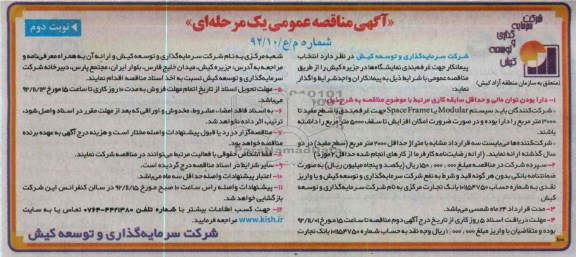 «آگهی مناقصه عمومی یک مرحله‌ای»
نوبت دوم
شماره م/ع/۹۲/۱۰
شرکت
سرمایه
گذاری
و توسعه
کیش
(متعلق به سازمان منطقه آزاد کیش)
شرکت سرمایه‌گذاری و توسعه کیش در نظر دارد انتخاب
پیمانکار جهت غرفه‌بندی نمایشگاه‌ها در جزیره کیش را از طریق
مناقصه عمومی با شرایط ذیل به پیمانکاران واجد شرایط واگذار
نماید:
۱- دارا بودن توان مالی و حداقل سابقه کاری مرتبط با موضوع مناقصه به شرح ذیل:
شرکت‌کنندگان باید سیستم Modular یا Space Frame جهت غرفه‌بندی با سطح مفید تا
۳۰۰۰ متر مربع را دارا بوده و در صورت ضرورت امکان افزایش تا سقف ۵۰۰۰ متر مربع را داشته
باشند.
شرکت‌کننده‌ها می‌بایست سه قرارداد مشابه با متراژ حداقل ۲۰۰۰ متر مربع (سطح مفید) در دو
سال گذشته ارائه نمایند. (ارائه رضایت‌نامه کارفرما از کارهای انجام شده حداقل ۲ مورد)
۲- سپرده شرکت در مناقصه مبلغ ۱۵۰,۰۰۰,۰۰۰ ریال (یکصد و پنجاه میلیون ریال) به صورت
ضمانتنامه بانکی بدون هر گونه قید و شرط به نفع شرکت سرمایه‌گذاری و توسعه کیش و یا واریز
نقدی به شماره حساب ۱۰۱۵۴۷۵۰ بانک تجارت مرکزی به نام شرکت سرمایه‌گذاری و توسعه
کیش
۳- مدت قرارداد ۲۴ ماه شمسی می‌باشد.
۴- مهلت دریافت اسناد ۵ روز کاری از تاریخ درج آگهی دوم مناقصه تا ساعت ۱۵ مورخ ۹۲/۱۱/۰۱
بوده و متقاضیان با واریز مبلغ ۱,۰۰۰,۰۰۰ ریال وجه نقد به حساب شماره ۱۰۱۵۴۷۵۰ بانک تجارت
شعبه مرکزی به نام شرکت سرمایه‌گذاری و توسعه کیش و ارائه آن به همراه معرفی‌نامه و
مراجعه به آدرس، جزیره کیش، میدان خلیج فارس، بلوار ایران، مجتمع پارس، دبیرخانه شرکت
سرمایه‌گذاری و توسعه کیش نسبت به اخذ اسناد مناقصه اقدام نمایند.
۵- مهلت تحویل اسناد از تاریخ اتمام مهلت فروش به مدت ۱۰ روز کاری تا ساعت ۱۵ مورخ ۹۲/۱۱/۱۳
می‌باشد.
۶- به اسناد فاقد امضا، مشروط، مخدوش و اوراقی که بعد از مهلت مقرر در اسناد واصل شود،
ترتیب اثر داده نخواهد شد.
۷- مناقصه‌گزار در رد یا قبول پیشنهادات واصله مختار است و هزینه درج آگهی به عهده برنده
مناقصه خواهد بود.
۸- تنها اشخاص حقوقی با فعالیت مرتبط می‌توانند در مناقصه شرکت نمایند.
۹- سایر شرایط در اسناد مناقصه درج گردیده است.
۱۰- اعتبار پیشنهادات واصله حداقل سه ماه می‌باشد.
۱۱- پیشنهادات واصله راس ساعت ۱۰ صبح مورخ ۹۲/۱۱/۱۵ در سالن کنفرانس این شرکت
بازگشایی خواهد شد.
۱۲- جهت کسب اطلاعات بیشتر با شماره تلفن ۴۴۲۱۳۸۰-۰۷۶۴ تماس یا به سایت
www.kish.ir مراجعه فرمایید.
شرکت سرمایه‌گذاری و توسعه کیش